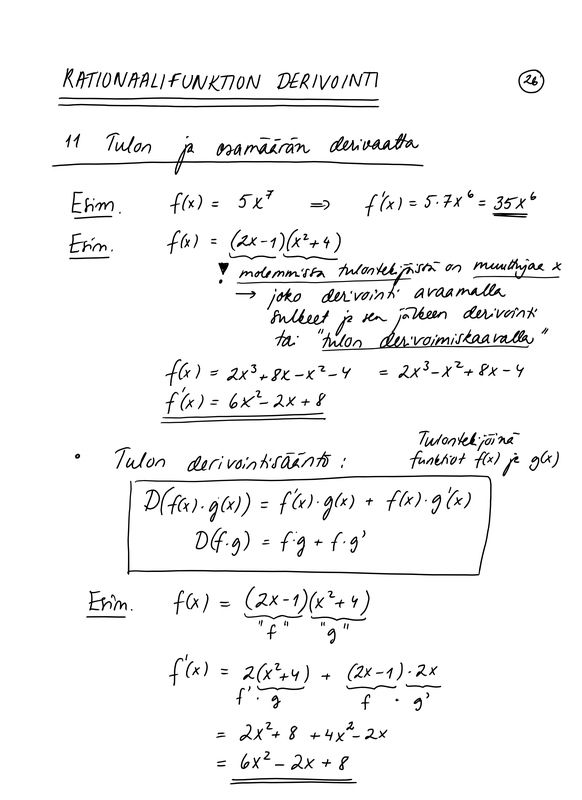 RATIONAALIFUNKTION DERIVOINTI
26
11 Tulon ja osamäärän derivaatta
Esim. f(x) = 5x⁷ ⇒ f'(x) = 5·7x⁶ = 35x⁶
Esim. f(x) = (2x-1)(x²+4)
! molemmissa tulontekijöissä on muuttujaa x
→ joko derivointi avaamalla
sulkeet ja sen jälkeen derivointi
tai "tulon derivoimiskaavalla"
f(x) = 2x³+8x-x²-4 = 2x³-x²+8x-4
f'(x) = 6x²-2x+8
Tulontekijöinä
funktiot f(x) ja g(x)
• Tulon derivointisääntö:
D(f(x)·g(x)) = f'(x)·g(x) + f(x)·g'(x)
D(f·g) = f'·g + f·g'
Esim. f(x) = (2x-1)(x²+4)
"f" "g"
f'(x) = 2(x²+4) + (2x-1)·2x
f' · g f · g'
= 2x²+8 +4x²-2x
= 6x²-2x+8